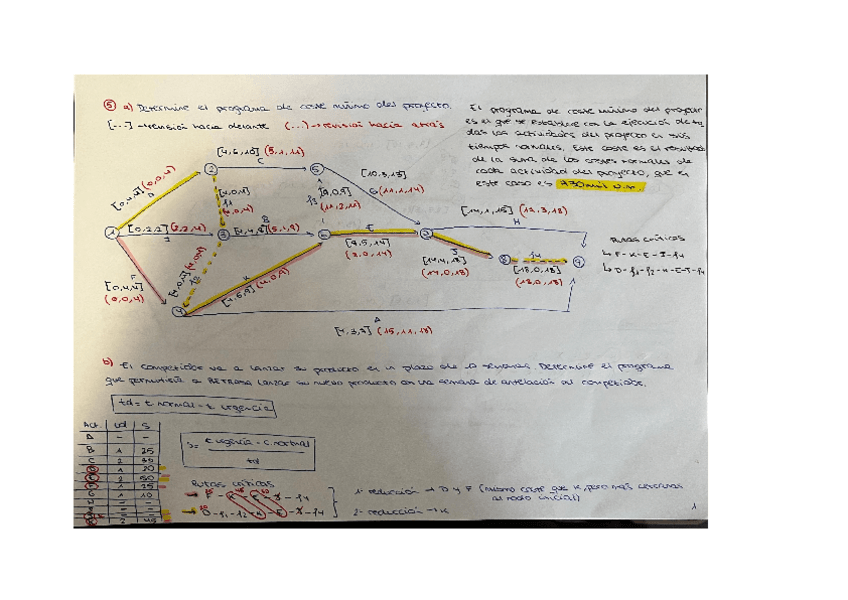 ⑤ a) Determine el programa de coste mínimo del proyecto.
[...] → revisión hacia delante (...) → revisión hacia atrás
El programa de coste mínimo del proyecto
es el que se establece con la ejecución de to
das las actividades del proyecto en sus
tiempos normales. Este coste es el resultado
de la suma de los costes normales de
cada actividad del proyecto, que en
este caso es 730 mil u.m.
[4,6,10] (5,1,11)
C
2
5
[10,3,13]
G (11,1,14)
[0,4,4] (0,0,4)
D
[4,0,4]
f1
(4,0,4)
[9,0,9]
f3
(11,2,11)
[14,1,15] (17,3,18)
H
1
[0,2,2] (2,2,4)
3
B
[4,4,8] (5,1,9)
6
E
[9,5,14]
(9,0,14)
7
J
[14,4,18]
(14,0,18)
8
f4
[18,0,18]
(18,0,18)
9
Rutas críticas
↳ F-K-E-J-f4
↳ D-f1-f2-K-E-J-f4
F
[0,4,4]
(0,0,4)
K
[4,5,9] (4,0,9)
4
A
[4,3,7] (15,11,18)
b) El competidor va a lanzar su producto en un plazo de
semanas. Determine el programa
que permitiría a
lanzar su nuevo producto con una semana de antelación al competidor.
td = t normal - t urgencia
Act. td S
A - -
B 1 25
C 2 35
1 20
2 50
1 25
G 1 10
- -
- -
2 45
S = c urgencia - c normal
td
Rutas críticas
→ D-f1-f2-K-E-J-f4
1ª reducción → D y F (mismo coste que K, pero más cercanas
al nodo inicial)
2ª reducción → K
1